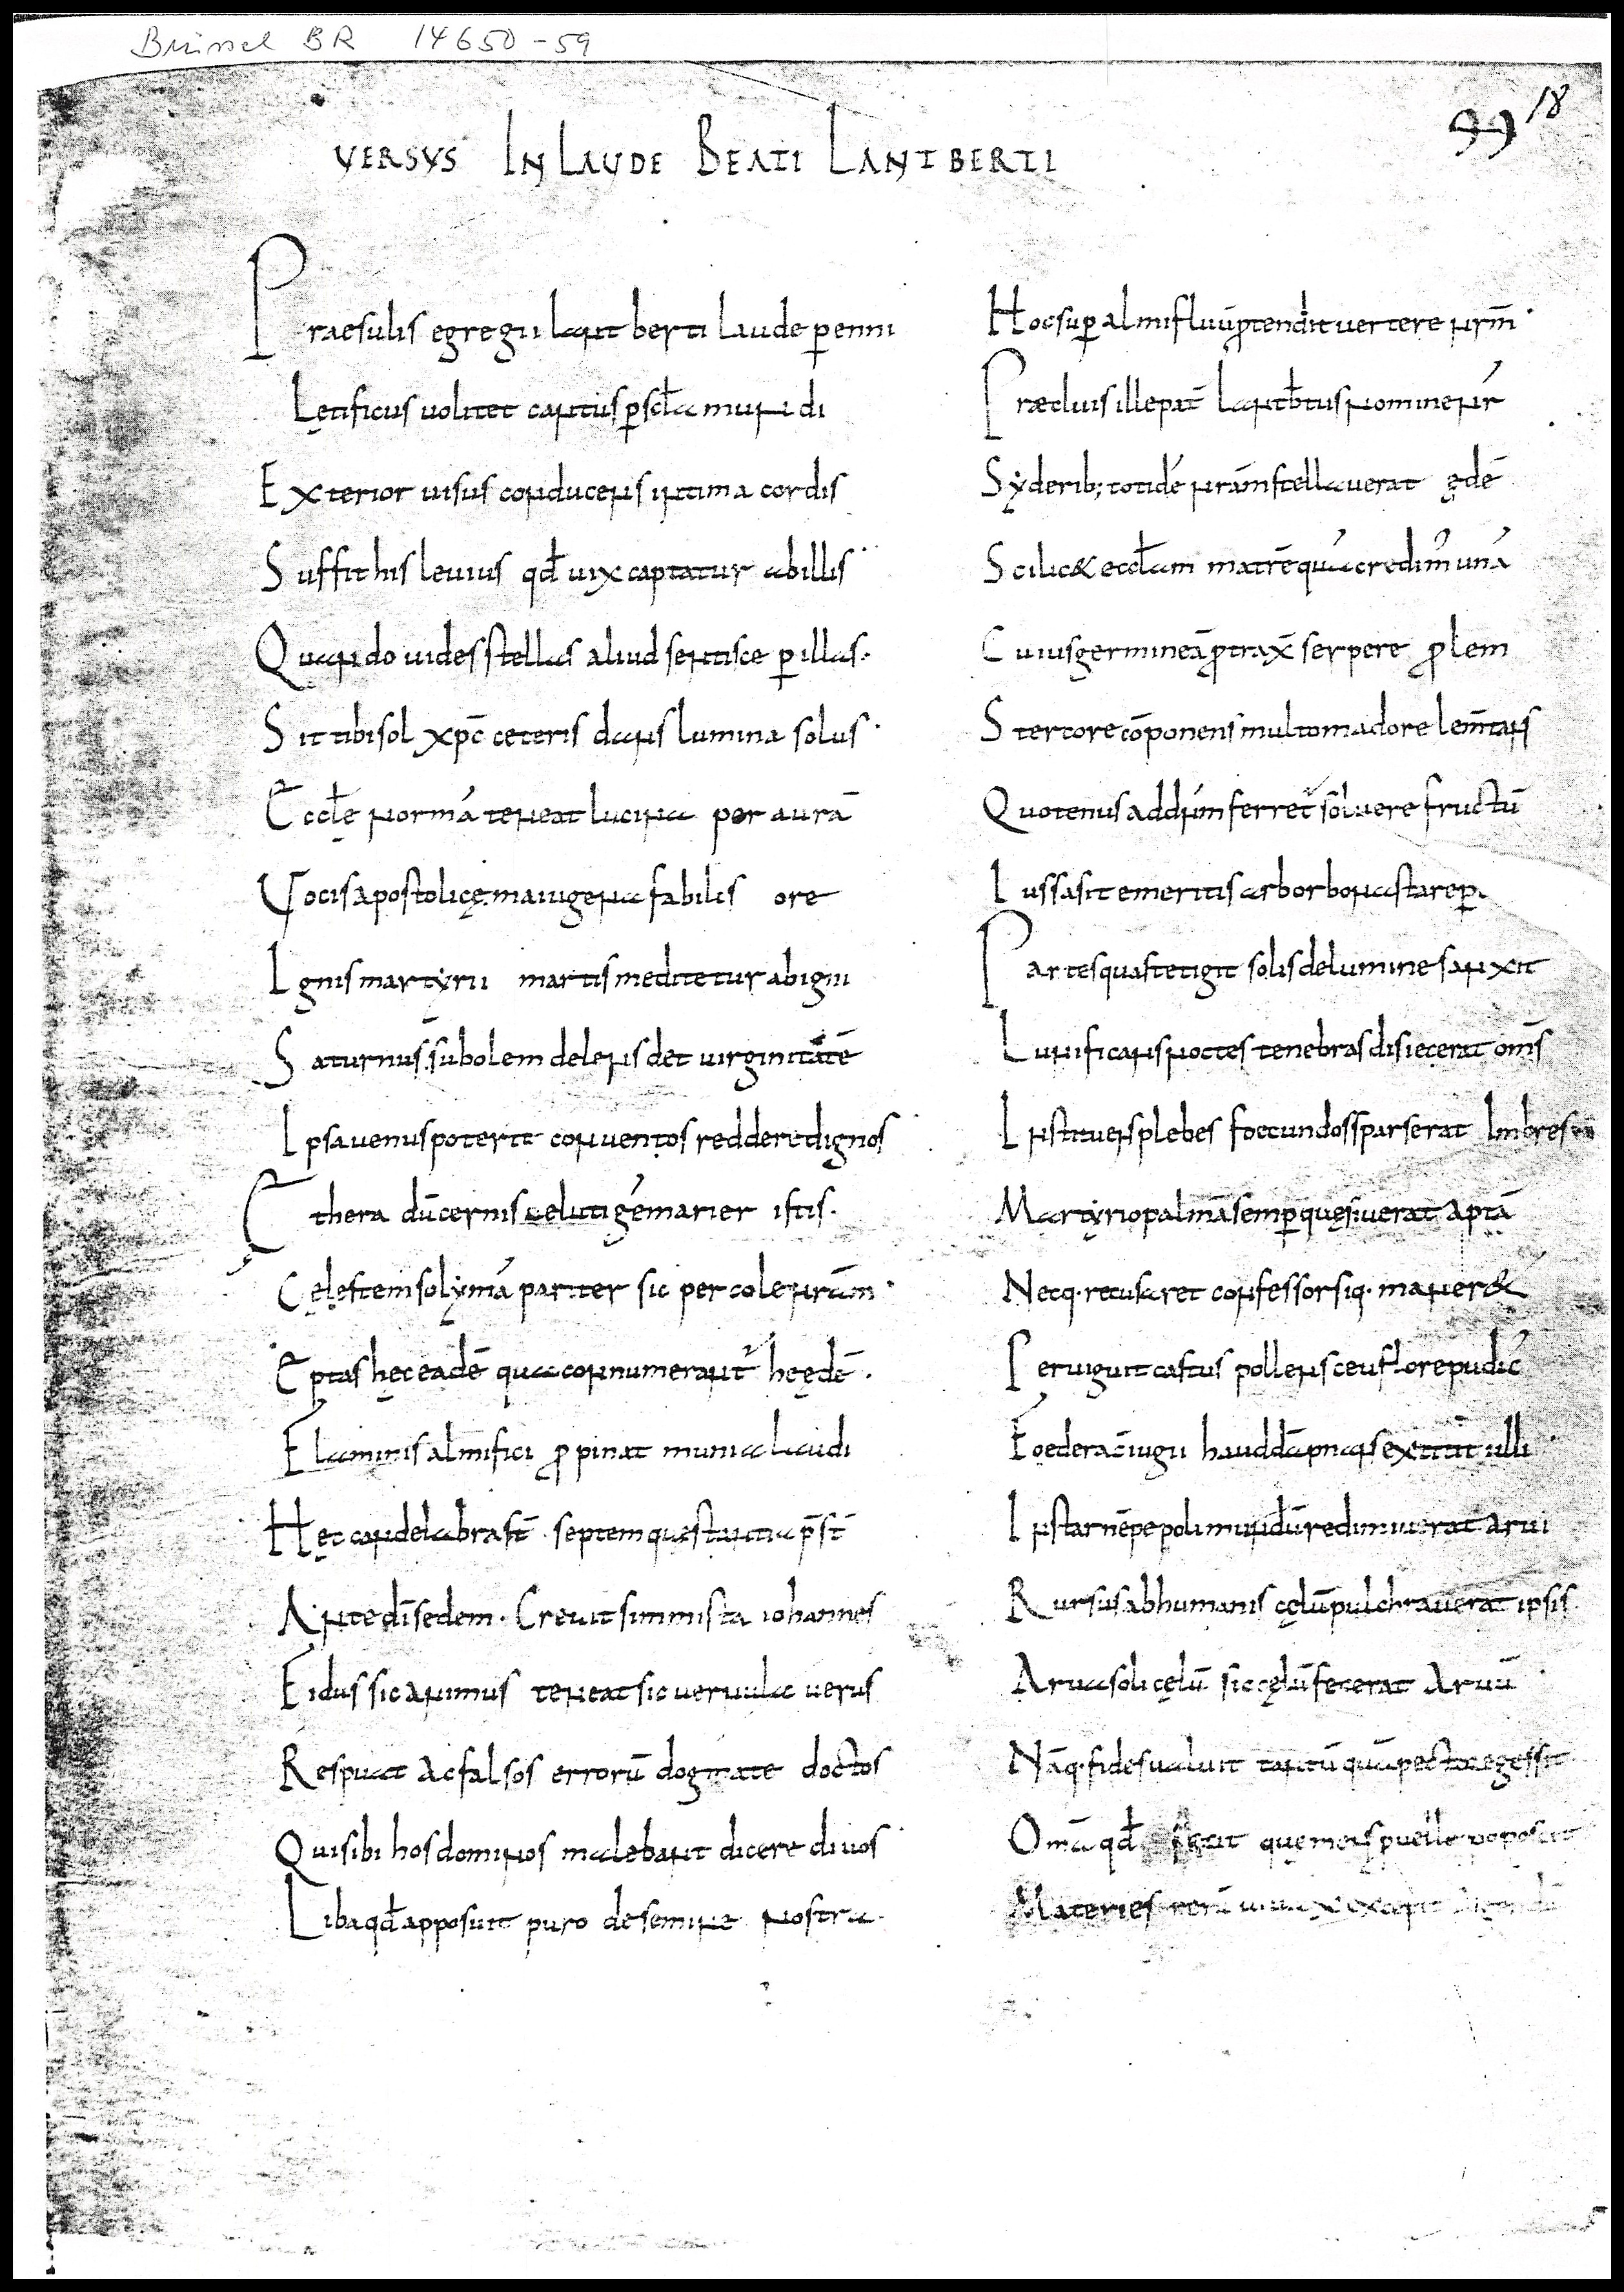 Brüssel BR 14650-59
99 18
VERSVS IN LAVDE BEATI LANTBERTI
Praesulis egregii lantberti laude perenni
Lętificus uolitet cantus p̱ sc̄la mundi
Exterior uisus conducens intima cordis
Suffit his leuius qđ uix captatur ab illis
Quando uides stellas aliud sentisce p̱ illas.
Sit tibi sol xp̄c ceteris dans lumina solus
Eccl̄ę normā teneat lucina per aurā
Vocis apostolicę maiugena fabilis ore
Ignis martyrii martis meditetur ab igni
Saturnus subolem delens det uirginitatē
Ipsa uenus poterit conuentos reddere dignos
Ęthera dū cernis ueluti gēmarier istis.
Cęlestem solymā pariter sic percole nr̄am
Eptas hęc eadē qua connumerant᷑ hę ędē.
Flaminis almifici ꝓpinat munia laudi
Hęc candelabra st̄ septemque stantia p̄st̄
Ante dī sedem. Creuit simmista iohannes
Fidus sic animus teneat sic uernula uerus
Respuat ac falsos errorū dogmate doctos
Qui sibi hos dominos malebant dicere diuos
Liba qđ apposuit puro de semine nostra.
Hoc sup̱ almifluū ꝓtendit uertere nr̄m
Præcluis ille pat̄ lantb̄tus nomine nr̄
Syderib; totidē nrām stellauerat ędē
Scilic& eccl̄am matrē quā credim᷒ unā
Cuius germineā ꝓtrax̄ serpere ꝓlem
Stercore cōponens multo madore lem̄tans
Quotenus ad dn̄m ferret᷑ soluere fructū
Iussa sit emeritis arbor bona stare p̱
Partes quas tetigit solis de lumine sanxit
Lunificans noctes tenebras disiecerat om̄s
Instituens plebes foecundos sparserat Imbres
Martyrio palmā semp̱ quęsiuerat aptā
Necq. recusaret confessor siq. maner&
Peruiguit castus pollens ceu flore pudic᷒
Foedera c̄iugii haud dāpnans extitit ulli
Instar nēpe poli mundū redimiuerat arui
Rursus ab humanis cęlū pulchrauerat ipsis
Arua soli cęlū sic cęlū fecerat Aruū
Nāq. fides ualuit tantū quā pectore gessit
Om̄a qđ
Materies